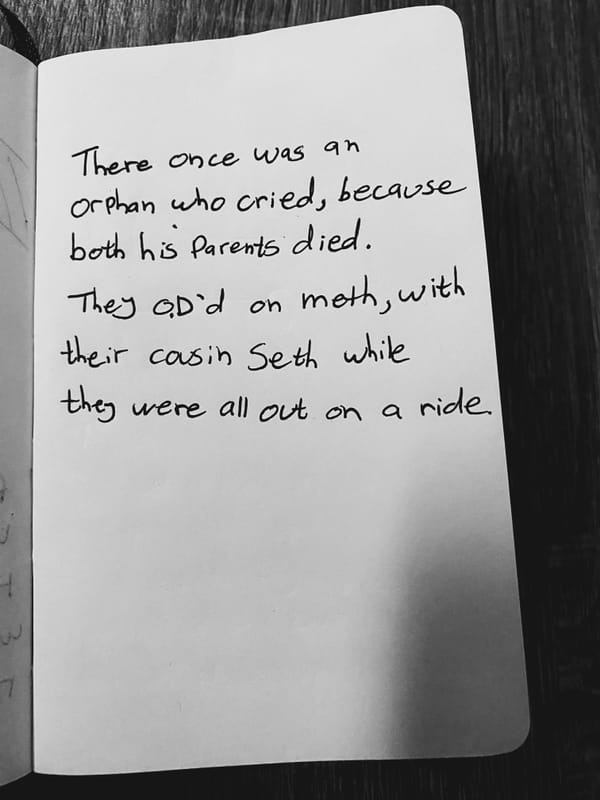 There once was an
orphan who cried, because
both his Parents died.
They O.D'd on meth, with
their cousin Seth while
they were all out on a ride.